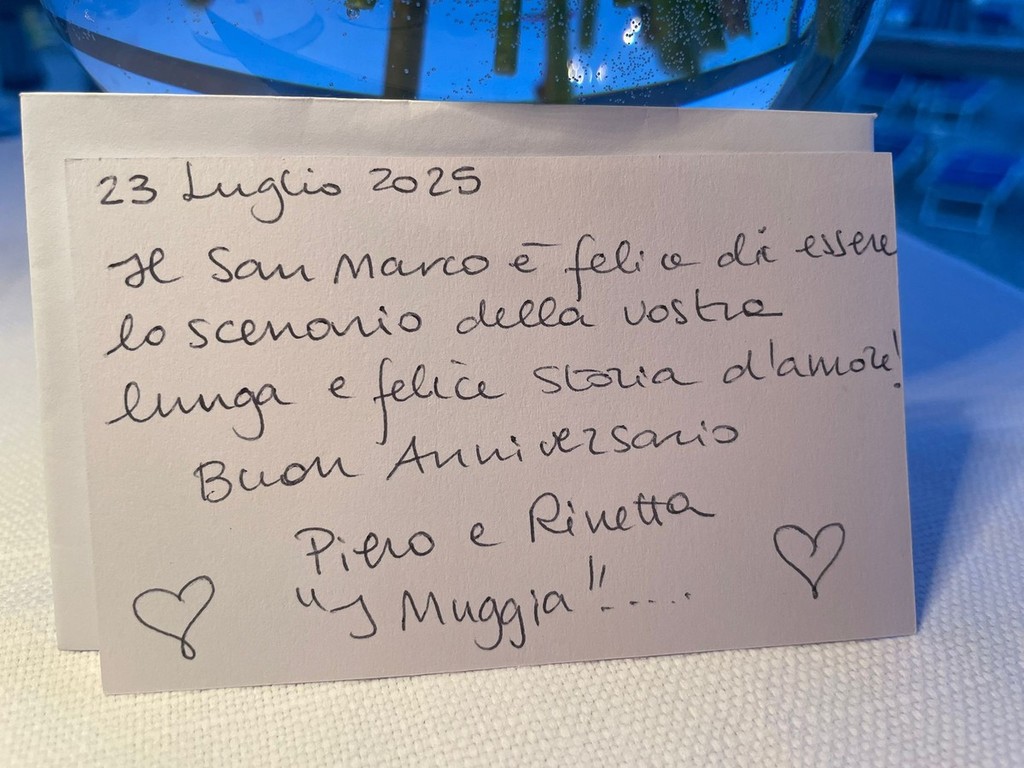 23 Luglio 2025
Il San Marco è felice di essere
lo scenario della vostra
lunga e felice storia d'amore!
Buon Anniversario
Piero e Rinetta
"I Muggia"!.....